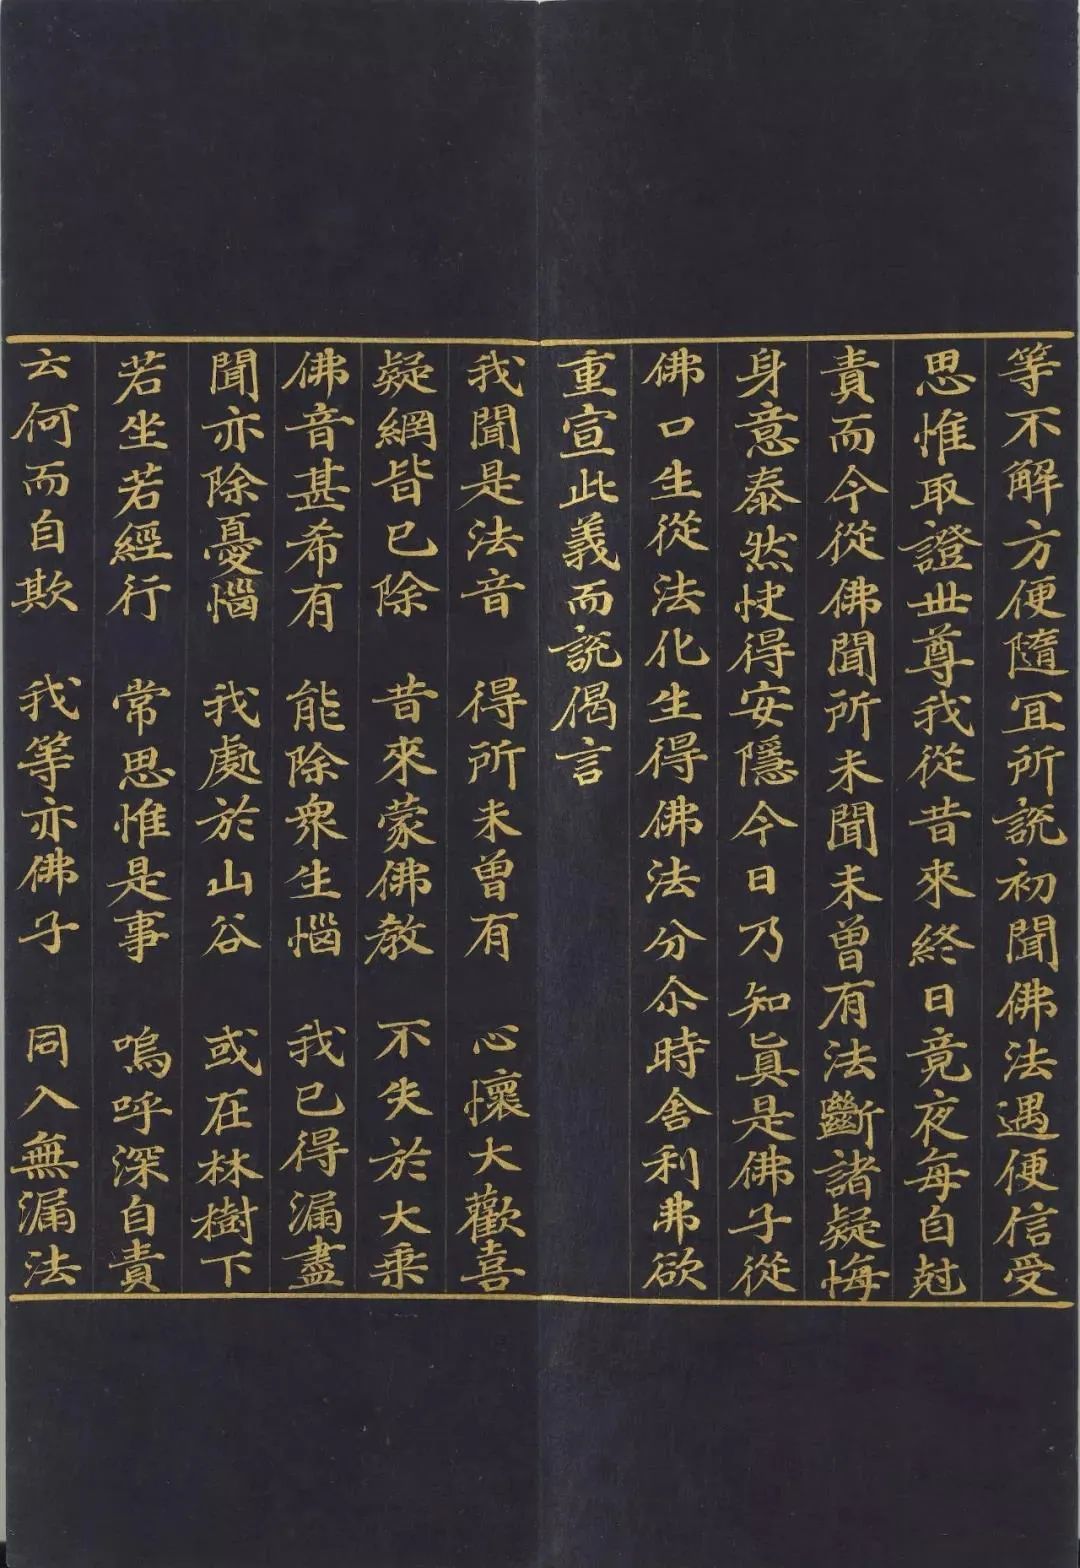 等不解方便隨冝所說初聞佛法遇便信受
思惟取證世尊我從昔來終日竟夜每自尅
責而今從佛聞所未聞未曾有法斷諸疑悔
身意泰然快得安隱今日乃知真是佛子從
佛口生從法化生得佛法分尒時舍利弗欲
重宣此義而說偈言
我聞是法音 得所未曾有 心懷大歡喜
疑網皆已除 昔來蒙佛教 不失於大乘
佛音甚希有 能除衆生惱 我已得漏盡
聞亦除憂惱 我處於山谷 或在林樹下
若坐若經行 常思惟是事 嗚呼深自責
云何而自欺 我等亦佛子 同入無漏法